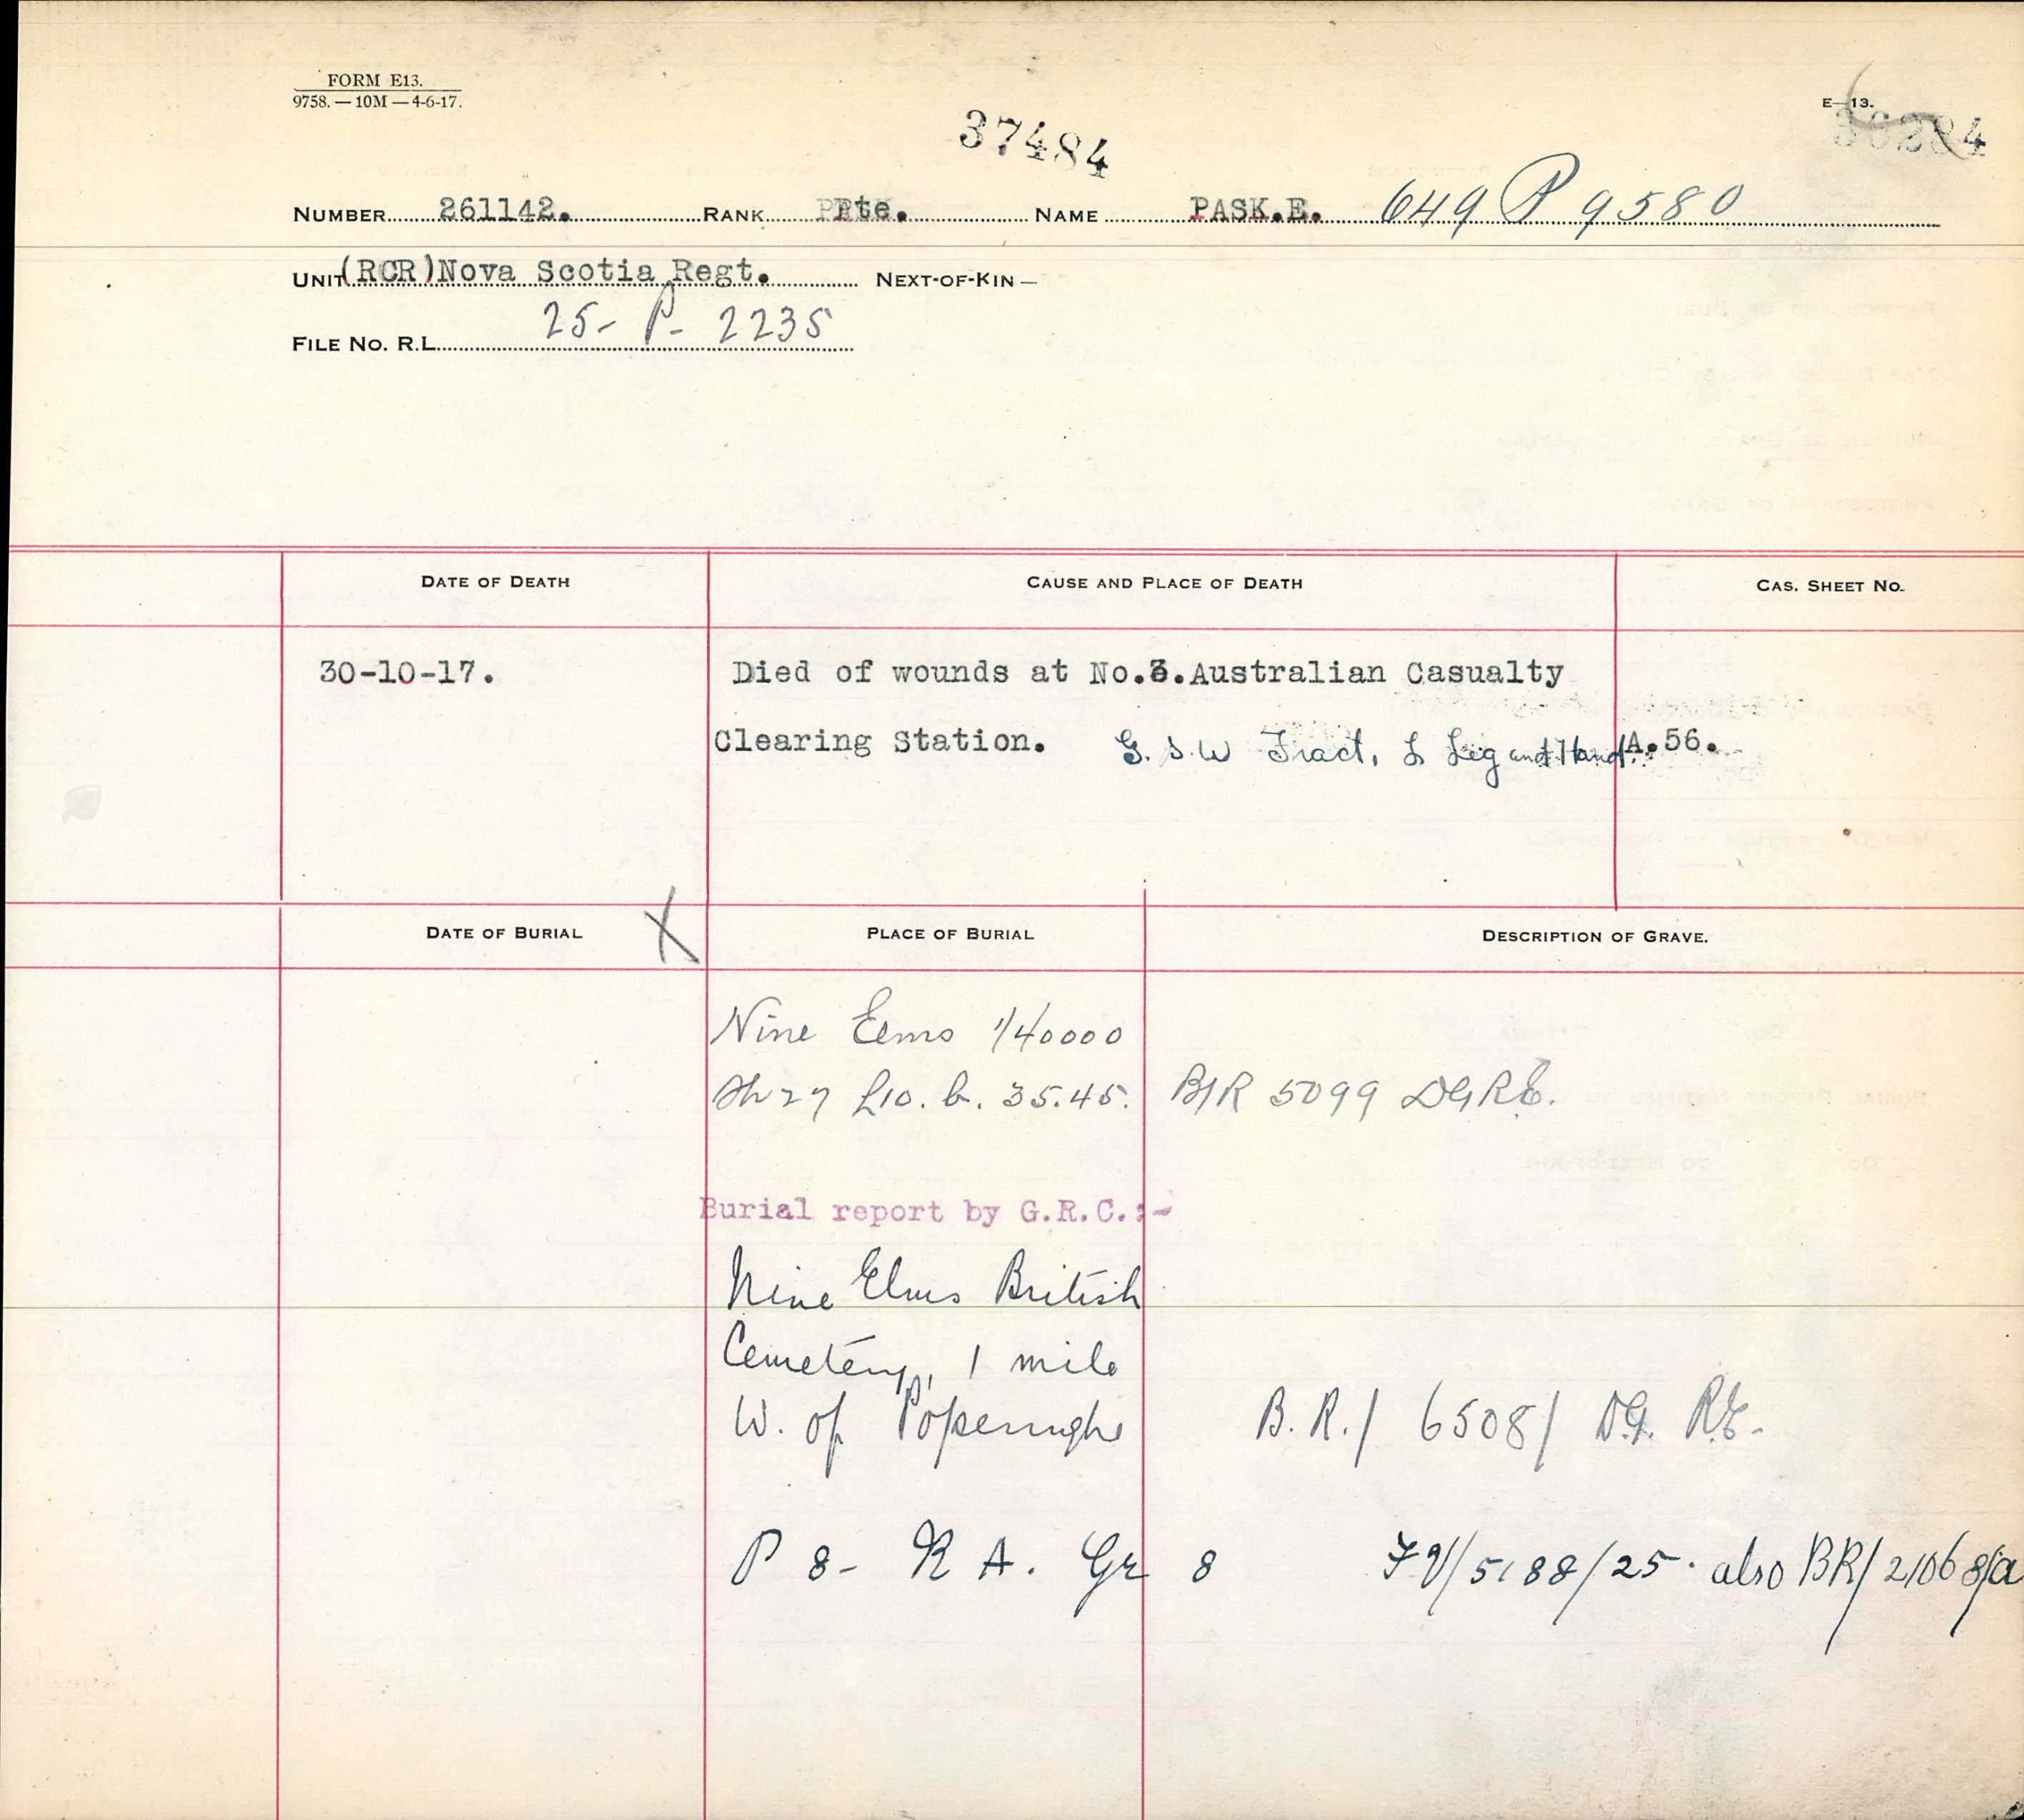 FORM E13.
9758. — 10M — 4-6-17.
E—13.
37484
NUMBER 261142. RANK Pte. NAME PASK.E. 649 P 9580
UNIT (RCR)Nova Scotia Regt. NEXT-OF-KIN —
FILE No. R.L. 25- P- 2235
DATE OF DEATH CAUSE AND PLACE OF DEATH CAS. SHEET NO.
30-10-17. Died of wounds at No.3.Australian Casualty
Clearing Station. G. S. W Fract, L Leg and Hand. A.56.
DATE OF BURIAL X PLACE OF BURIAL DESCRIPTION OF GRAVE.
Nine Elms 1/40000
Sh 27 L10. b. 35.45. B/R 5099 DGRE.
Burial report by G.R.C.:-
Nine Elms British
Cemetery, 1 mile
W. of Poperinghe B. R./ 6508/ D.G. R.E.
P 8- R A. Gr 8 /5188/25. also BR/21068/a